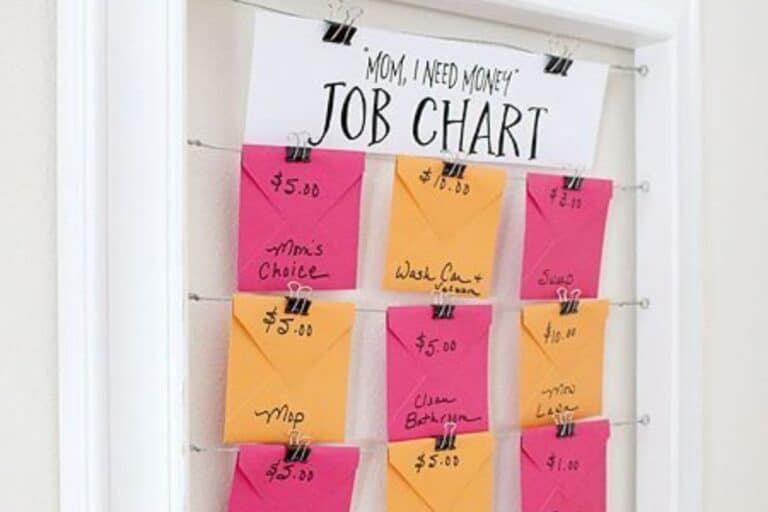 "MOM, I NEED MONEY"
JOB CHART
$5.00
Mom's
Choice
$10.00
Wash Car +
Vacuum
$3.00
Sweep
$5.00
Mop
$5.00
Clean
Bathroom
$10.00
Mow
Lawn
$5.00
$5.00
$1.00